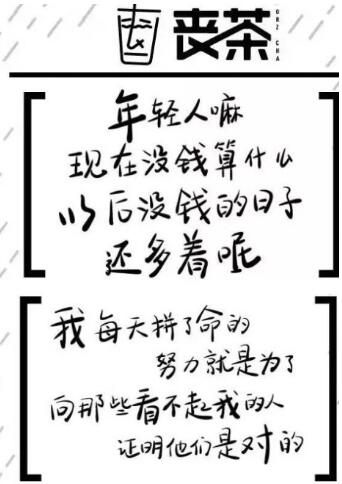 丧茶
ORZ CHA
年轻人嘛
现在没钱算什么
以后没钱的日子
还多着呢
我每天拼了命的
努力就是为了
向那些看不起我的人
证明他们是对的